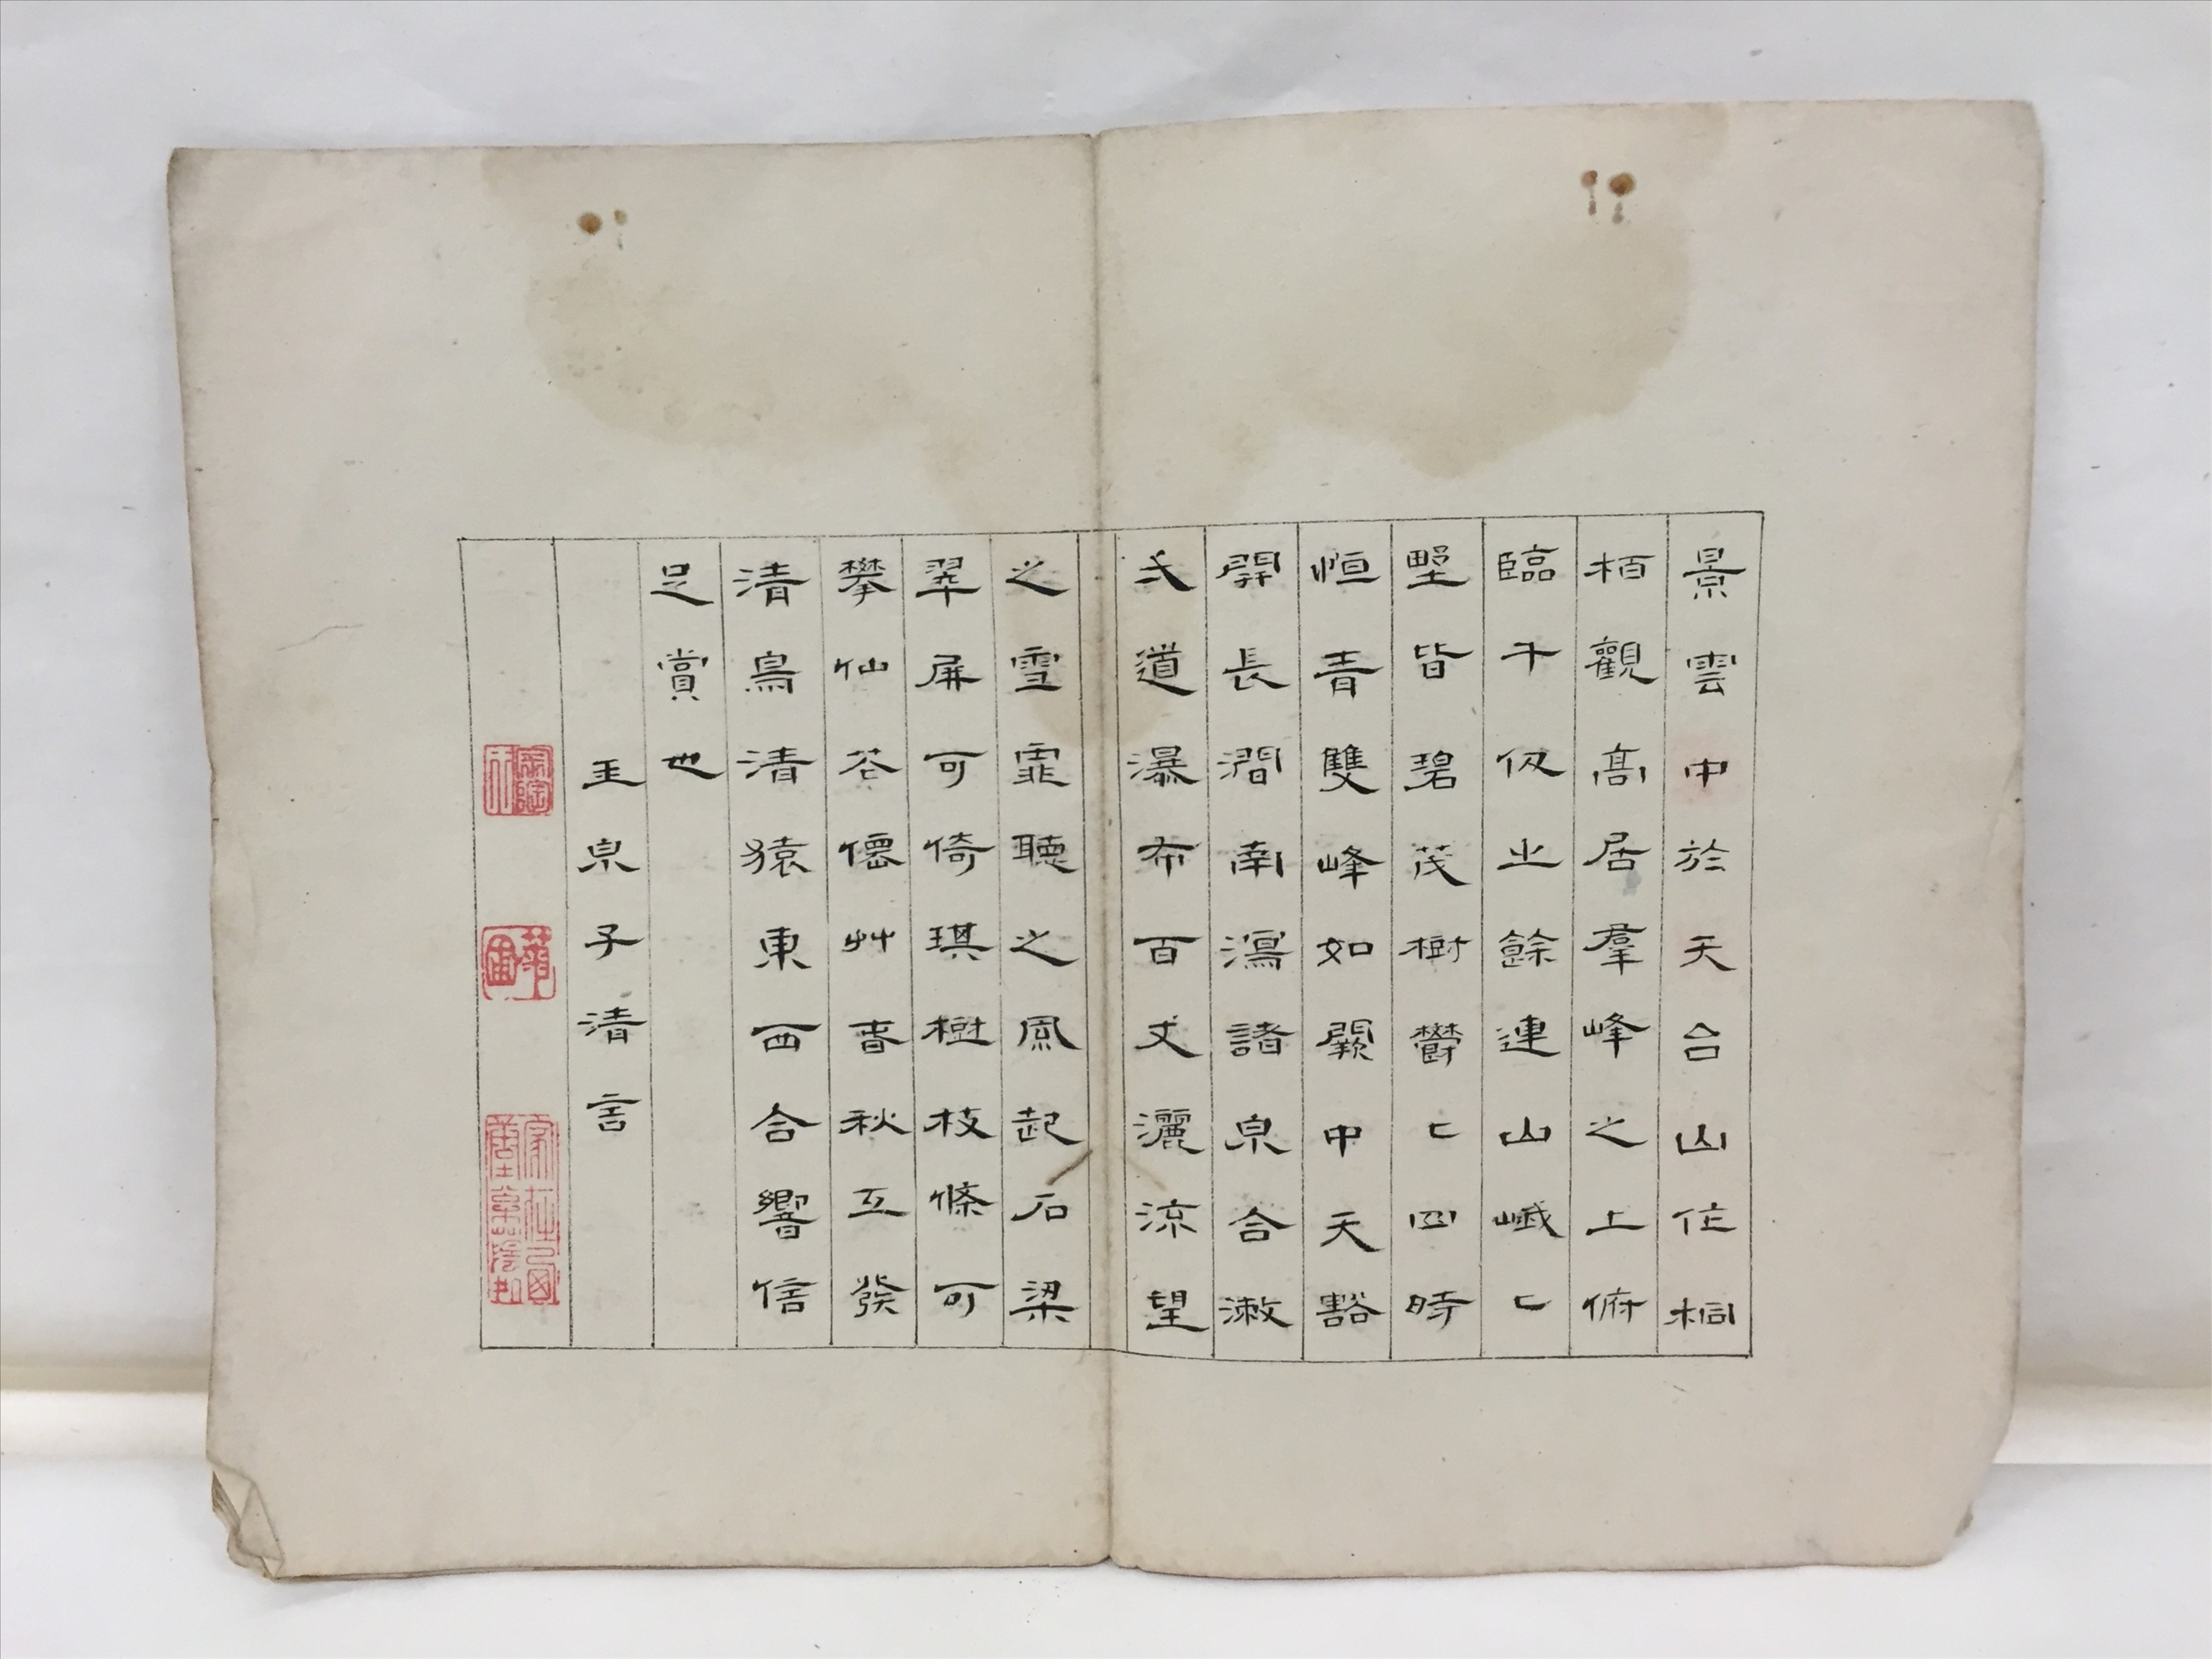 景雲中於天台山作桐
栢觀高居羣峰之上俯
臨千仭之餘連山峨〻
野皆碧茂樹鬱〻四時
恒青雙峰如闕中天豁
開長澗南瀉諸泉合漱
道瀑布百丈灑流望
之雪霏聽之風起石梁
翠屏可倚琪樹枝條可
攀仙花僊艸春秋互發
清鳥清猿東西合響信
足賞也
玉泉子清言